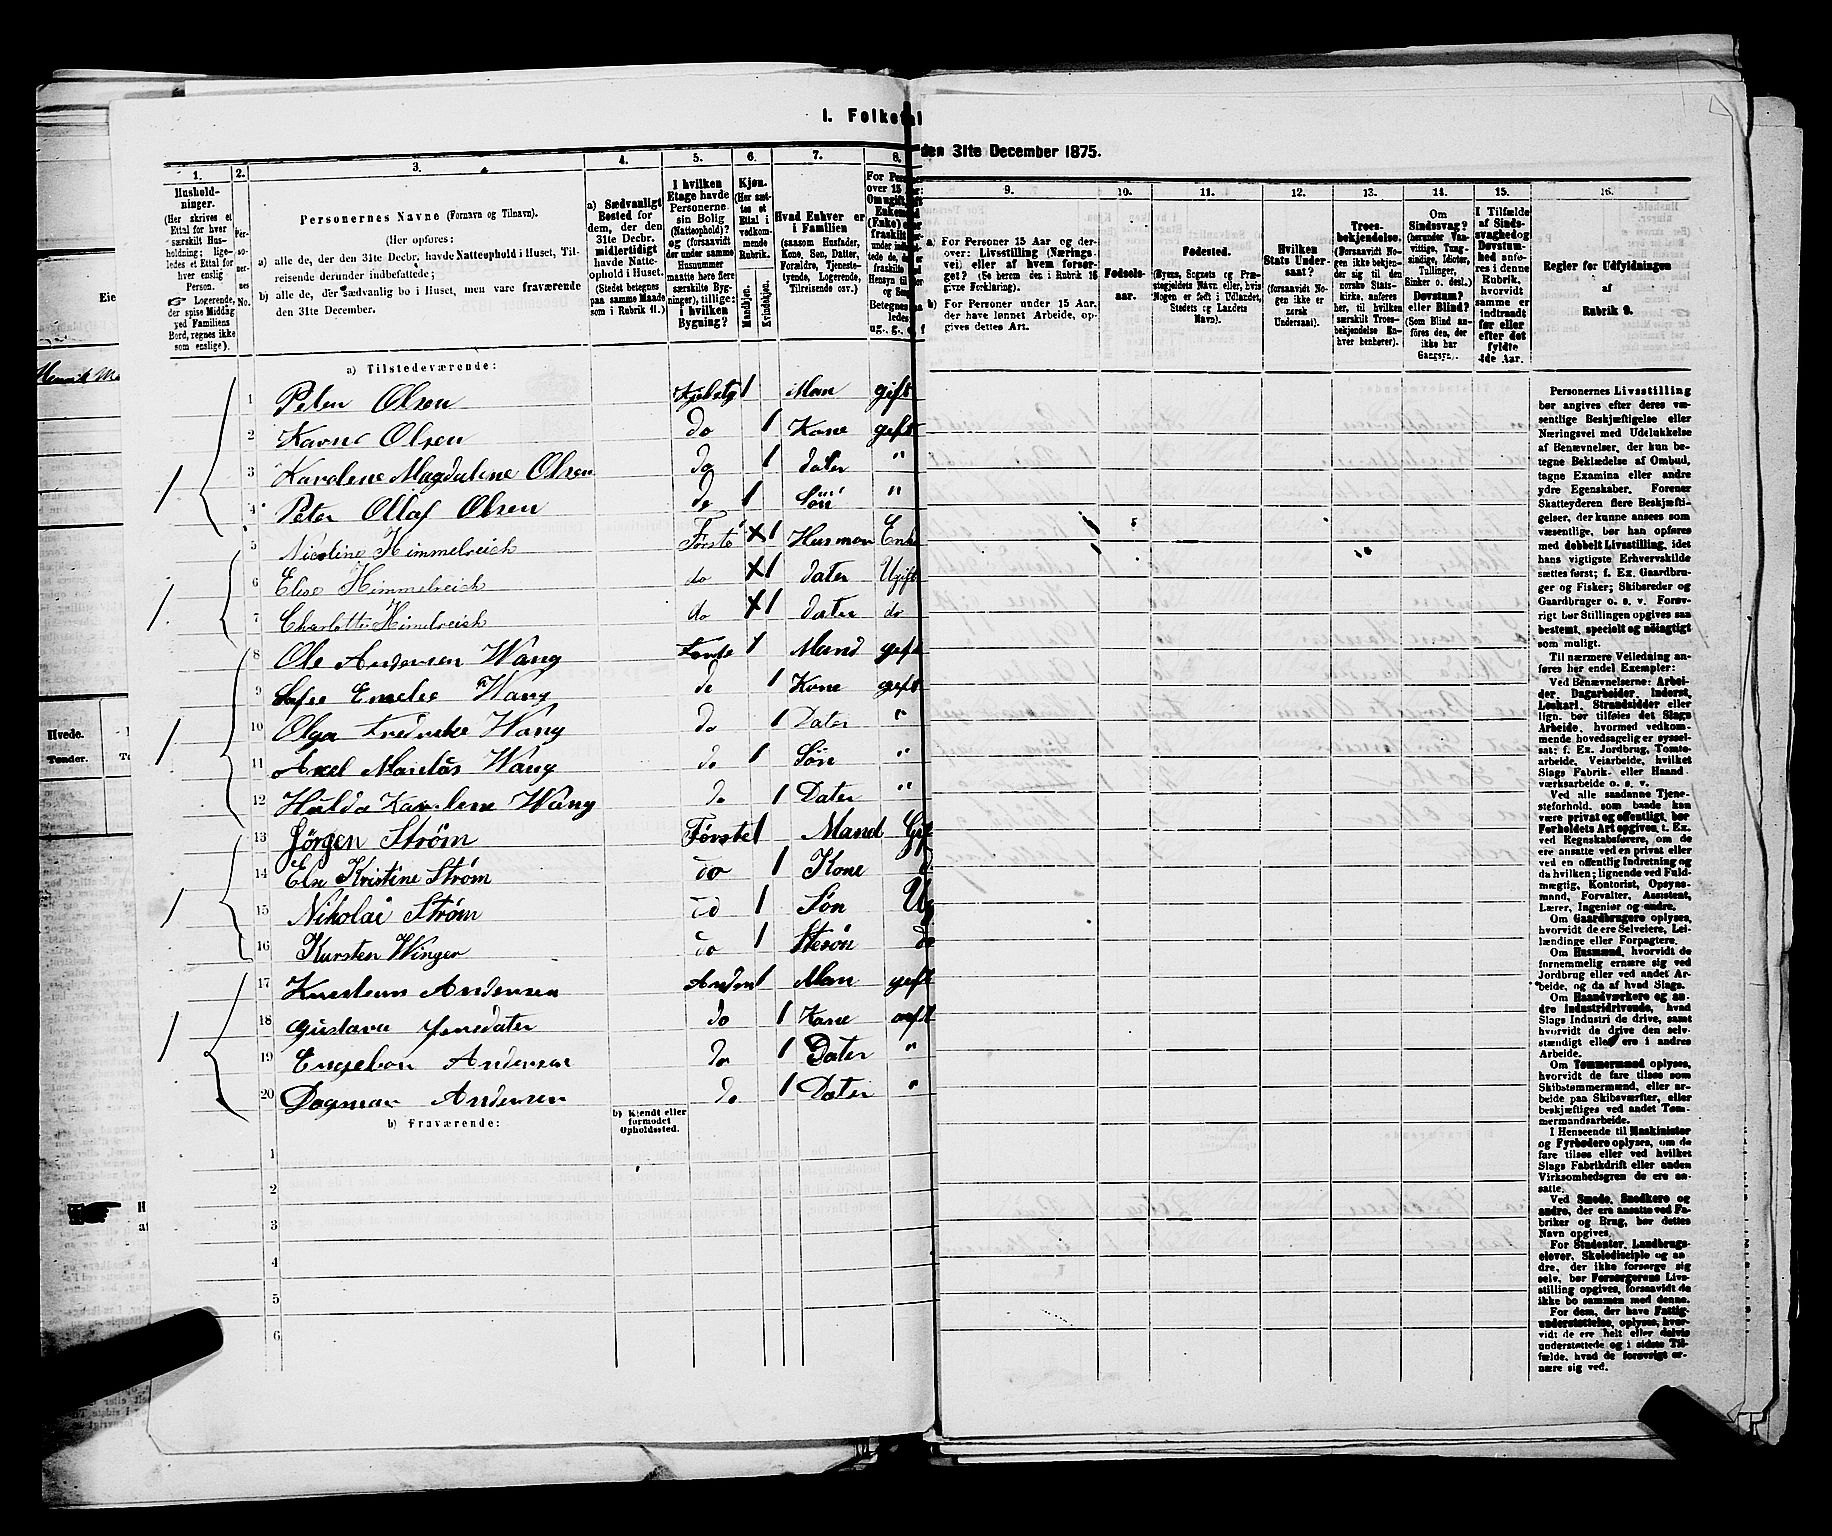 I. Folketal
den 31te December 1875.
1. 2. 3. 4. 5. 6. 7. 8.
Husholdninger.
(Her skrives et
Ettal for hver
særskilt Husholdning;
ligeledes et Ettal for
hver enslig
Person.
Logerende,
der spise Middag
ved Familiens
Bord, regnes ikke
som enslige).
Personernes No.
Personernes Navne (Fornavn og Tilnavn).
(Her opføres:
a) alle de, der den 31te Decbr. havde Natteophold i Huset, Tilreisende derunder indbefattede;
b) alle de, der sædvanlig bo i Huset, men vare fraværende
den 31te December.
a) Sædvanligt
Bosted for
dem, der den
31te Decbr.
midlertidigt
havde Natteophold
i Huset.
(Stedet betegnes
paa samme Maade
som i Rubrik 11.)
I hvilken
Etage havde
Personerne
sin Bolig
(Natteophold)?
og (forsaavidt
der under samme
Husnummer
maatte høre flere
særskilte Bygninger),
tillige:
i hvilken
Bygning?
Kjøn.
(Her sættes
et
Ettal i
vedkommende
Rubrik.
Mandkjøn.
Kvindekjøn.
Hvad Enhver er
i Familien
(saasom Husfader,
Kone, Søn, Datter,
Forældre, Tjenestetyende,
Logerende,
Tilreisende osv.)
a) Tilstedeværende:
1 Peter Olsen Man gift
2 Olsen do 1 Kone gift
3 Karolene Magdalene Olsen do 1 dater "
4 Peter Ollaf Olsen do 1 Søn "
5 Nicoline Himmelreich Første 1 Husmon Enke
6 Elise Himmelreich do 1 dater Ugift
7 Charlotte Himelreich do 1 dater do
8 Ole Andersen Wang 1 Mand gift
9 Wang do 1 Kone gift
10 Olga Wang do 1 Dater "
11 Axel Wang do 1 Søn "
12 Hulda Karolene Wang do 1 Dater "
13 Jörgen Strøm Første 1 Mand Gif
14 Else Kristine Strøm do 1 Kone d
15 Nikolai Strøm do 1 Søn Ug
16 Winger do 1 Stesøn do
17 Andersen Anden 1 Man gift
18 Gustava do 1 Kone gift
19 Andersen do 1 Dater "
20 Dagmar Andersen do 1 Dater "
b) Fraværende:
b) Kjendt eller
formodet
Opholdssted.
1
2
3
4
5
6
9. 10. 11. 12. 13. 14. 15. 16.
a) For Personer 15 Aar og derover:
Livsstilling (Næringsvei)
eller af hvem forsørget?
(Se herom den i Rubrik 16
givne Forklaring).
b) For Personer under 15 Aar,
der have lønnet Arbeide, opgives
dettes Art.
Fødselsaar.
Fødested.
(Byens, Sognets og Præstegjeldets
Navn eller, hvis
Nogen er født i Udlandet,
Stedets og Landets
Navn).
Hvilken
Stats Undersaat?
(forsaavidt Nogen
ikke er
norsk
Undersaat).
Troesbekjendelse.
(Forsaavidt Nogen
ikke bekjender
sig til den
norske Statskirke,
anføres
her, til hvilken
særskilt Troesbekjendelse
Enhver
henhører).
Om
Sindssvag?
(herunder Vanvittige,
Tungsindige,
Idioter,
Tullinger,
Sinker o. desl.)
Døvstum?
eller Blind?
(Som Blind anføres
den, der
ikke har
Gangsyn).
I Tilfælde
af Sindssvaghed
og
Døvstumhed
anføres
i denne
Rubrik,
hvorvidt
samme er
indtraadt
før eller
efter det
fyldte
4de Aar.
Regler for Udfyldningen
af
Rubrik 9.
Personernes Livsstilling
bør angives efter deres væsentlige
Beskjæftigelse eller
Næringsvei med Udelukkelse
af Benævnelser, der kun betegne
Beklædelse af Ombud,
tagne Examina eller andre
ydre Egenskaber. Forener
Skatteyderen flere Beskjæftigelser,
der kunne ansees som
væsentlige, bør han opføres
med dobbelt Livsstilling, idet
hans vigtigste Erhvervskilde
sættes først; f. Ex. Gaardbruger
og Fisker; Skibsreder og
Gaardbruger o. s. v. Forøvrigt
bør Stillingen opgives saa
bestemt, specielt og nøiagtigt
som muligt.
Til nærmere Veiledning anføres
her endel Exempler:
Ved Benævnelserne: Arbeider,
Dagarbeider, Inderst,
Løskarl, Strandsidder eller
lign. bør tilføies det Slags
Arbeide, hvormed vedkommende
hovedsagelig er sysselsat;
f. Ex. Jordbrug, Tomtearbeide,
Veiarbeide, hvilket
Slags Fabrik- eller Haandværksarbeide
o. s. v.
Ved alle saadanne Tjenesteforhold,
som baade kan
være privat og offentligt, bør
Forholdets Art opgives, t. Ex.
ved Regnskabsførere, om de
ere ansatte ved en privat eller
ved en offentlig Indretning og
da hvilken; lignende ved Fuldmægtig,
Kontorist, Opsynsmand,
Forvalter, Assistent,
Lærer, Ingeniør og andre.
Om Gaardbrugere oplyses,
hvorvidt de ere Selveiere, Leilændinge
eller Forpagtere.
Om Husmænd, hvorvidt de
fornemmelig ernære sig ved
Jordbrug eller ved andet Arbeide,
og da af hvad Slags.
Om Haandværkere og andre
Industridrivende, hvad
Slags Industri de drive, samt
hvorvidt de drive den selvstændigt
eller ere i andres
Arbeide.
Om Tømmermænd oplyses,
hvorvidt de fare tilsøs som
Skibstømmermænd, eller arbeide
paa Skibsværfter, eller
beskjæftiges ved andet Tømmermandsarbeide.
I Henseende til Maskinister
og Fyrbødere oplyses, om de
fare tilsøs eller ved hvilket
Slags Fabrikdrift eller anden
Virksomhedsgren de ere ansatte.
Ved Smede, Snedkere og
andre, der ere ansatte ved Fabriker
og Brug, bør dettes
Navn opgives.
For Studenter, Landbrugselever,
Skoledisciple og andre,
der ikke forsørge sig
selv, bør Forsørgerens Livsstilling
opgives, forsaavidt de
ikke bo sammen med denne.
For dem, der have Fattigunderstøttelse,
oplyses, hvorvidt
de ere helt eller delvis
understøttede og i sidste Tilfælde,
hvad de forøvrigt ernære
sig ved.
Hvede.
Tønder.